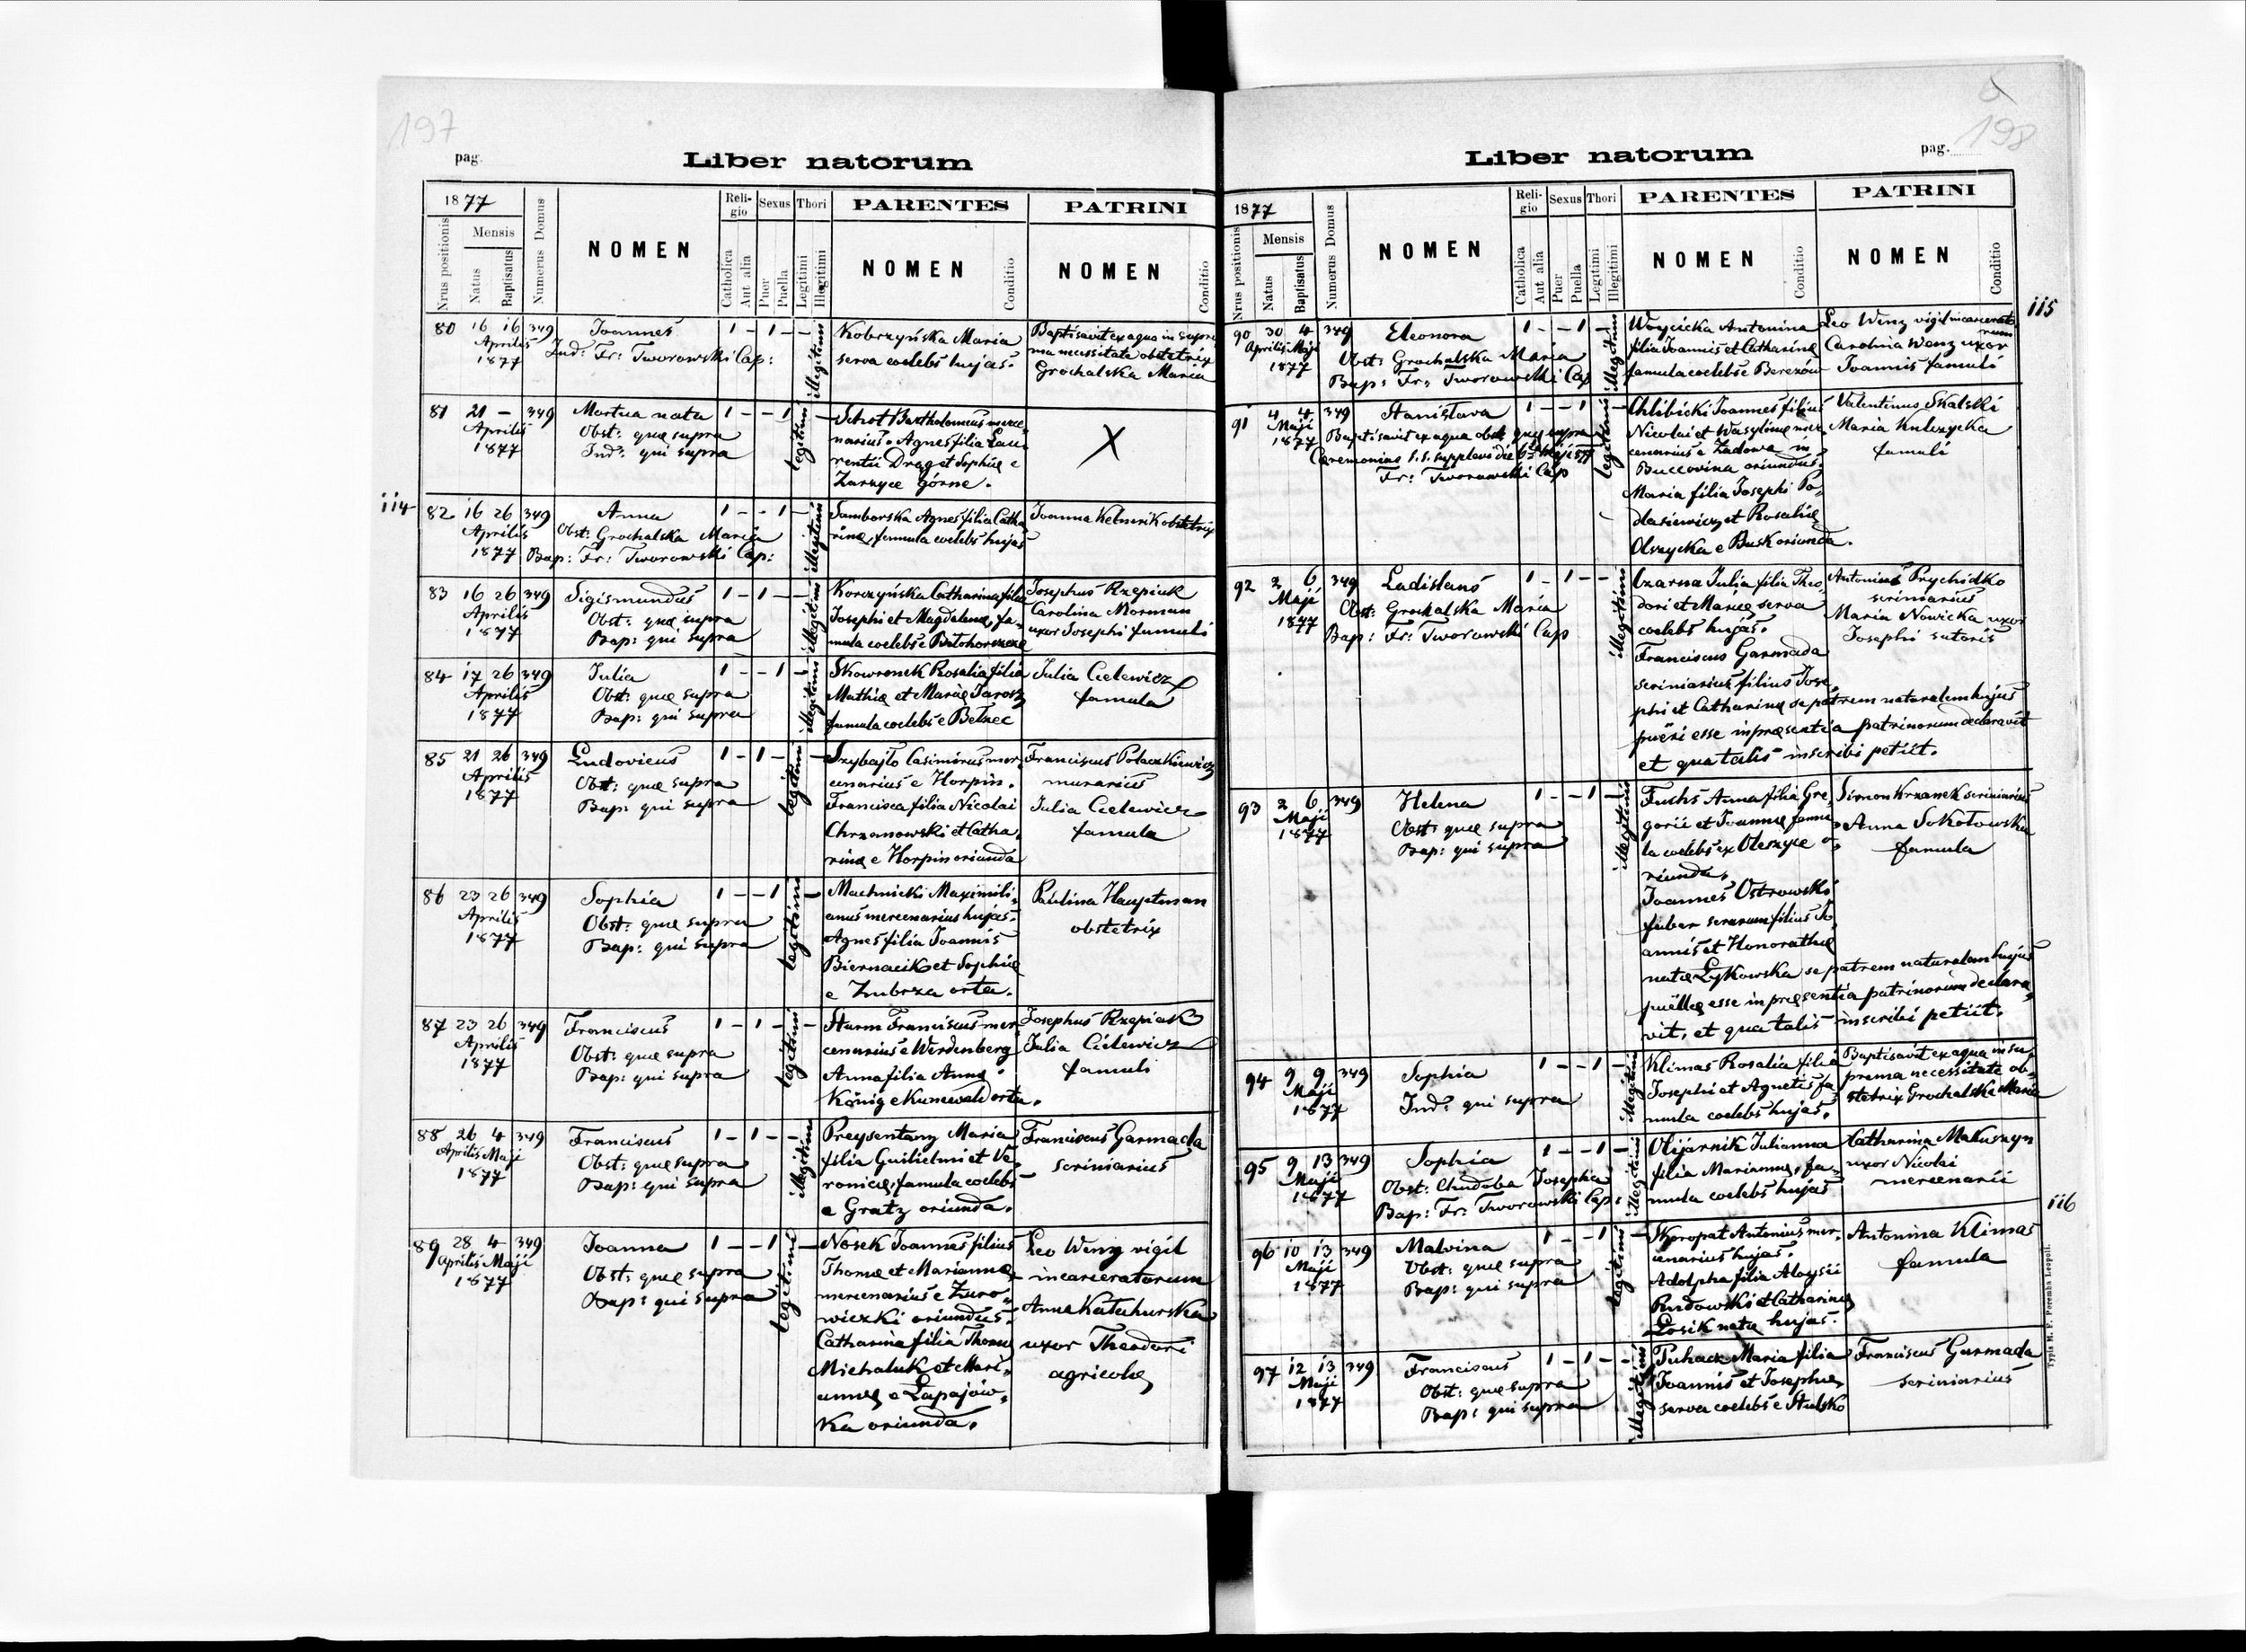 197
pag.
Liber natorum
1877
Nrus positionis
Mensis
Natus
Baptisatus
Numerus Domus
NOMEN
Religio
Catholica
Aut alia
Sexus
Puer
Puella
Thori
Legitimi
Illegitimi
PARENTES
NOMEN
Conditio
PATRINI
NOMEN
Conditio
80 16 16 349 Joannes 1 - 1 - - illegitimi Kobrzyńska Maria Baptisavit ex aqua in supre
Aprilis Ind: Fr: Tworowski Cap: serva coelebs hujas. ma necessitate obstetrix
1877 Grochalska Maria
81 21 - 349 Mortua nata 1 - - 1 legitimi - Schot Bartholomeus merce-
Aprilis Obst: quae supra narius. Agnes filia Lau-
1877 Ind: qui supra rentii Drag et Sophiae e
Zarzyce górne.
X
114
82 16 26 349 Anna 1 - - 1 - illegitimi Samborska Agnes filia Catha Joanna Kelnerik obstetrix
Aprilis Obst: Grochalska Maria rinae, famula coelebs hujas
1877 Bap: Fr: Tworowski Cap:
83 16 26 349 Sigismundus 1 - 1 - - illegitimi Korczyńska Catharina filia Josephus Rzepiak
Aprilis Obst: quae supra Josephi et Magdalenae, fa- Carolina Morman
1877 Bap: qui supra mula coelebs e Biłohorszcze uxor Josephi famuli
84 17 26 349 Julia 1 - - 1 - illegitimi Skowronek Rosalia filia Julia Cielewicz
Aprilis Obst: quae supra Mathiae et Mariae Jarosz famula
1877 Bap: qui supra famula coelebs e Bełzec
85 21 26 349 Ludovicus 1 - 1 - legitimi - Szybajło Casimirus mer- Franciscus Polaczkiewicz
Aprilis Obst: quae supra cenarius e Horpin. murarius
1877 Bap: qui supra Francisca filia Nicolai Julia Cielewicz
Chrzanowski et Catha- famula
rinae e Horpin oriunda
86 23 26 349 Sophia 1 - - 1 legitimi - Machnicki Maximili- Paulina Hauptman
Aprilis Obst: quae supra anus mercenarius hujas. obstetrix
1877 Bap: qui supra Agnes filia Joannis
Biernacik et Sophiae
e Zubrza orta.
87 23 26 349 Franciscus 1 - 1 - legitimi - Sturm Franciscus mer- Josephus Rzepiak
Aprilis Obst: quae supra cenarius e Werdenberg Julia Cielewicz
1877 Bap: qui supra Anna filia Annae famuli
König e Kunewald orta.
88 26 4 349 Franciscus 1 - 1 - - illegitimi Preysentanz Maria Franciscus Garmada
Aprilis Maji Obst: quae supra filia Guilielmi et Ve- scriniarius
1877 Bap: qui supra ronicae, famula coelebs
e Gratz oriunda.
89 28 4 349 Joanna 1 - - 1 legitimi - Nosek Joannes filius Leo Wenz vigil
Aprilis Maji Obst: quae supra Thomae et Mariannae incarceratorum
1877 Bap: qui supra mercenarius e Zuro- Anna Katahurska
wiczki oriundus. uxor Theodori
Catharina filia Thomae agricolae
Michaluk et Mari-
annae e Łapajów-
ka oriunda.
198
Liber natorum
pag.
1877
Nrus positionis
Mensis
Natus
Baptisatus
Numerus Domus
NOMEN
Religio
Catholica
Aut alia
Sexus
Puer
Puella
Thori
Legitimi
Illegitimi
PARENTES
NOMEN
Conditio
PATRINI
NOMEN
Conditio
115
90 30 4 349 Eleonora 1 - - 1 - illegitimi Woycicka Antonina Leo Wenz vigil incarcerato
Aprilis Maji Obst: Grochalska Maria filia Joannis et Catharinae rum
1877 Bap: Fr: Tworowski Cap famula coelebs e Berezów Carolina Wenz uxor
Joannis famuli
91 4 4 349 Stanislava 1 - - 1 legitimi - Chlibicki Joannes filius Valentinus Skalski
Maji Baptisavit ex aqua obst: quae supra Nicolai et Wasylinae mer- Maria Kulczycka
1877 Ceremonias S.S. supplevi die 6 Maji 877 cenarius e Zadowa in famuli
Fr: Tworowski Cap Buccovina oriundus.
Maria filia Josephi Po-
dlasiewicz et Rosaliae
Olszycka e Busk oriunda.
92 2 6 349 Ladislaus 1 - 1 - - illegitimi Czarna Julia filia Theo- Antonius Prychidko
Maji Obst: Grochalska Maria dori et Mariae serva scriniarius
1877 Bap: Fr: Tworowski Cap coelebs hujas. Maria Nowicka uxor
Franciscus Garmada Josephi sutoris
scriniarius filius Jose-
phi et Catharinae se patrem naturalem hujus
puëri esse in praesentia patrinorum declaravit
et qua talis inscribi petiit.
93 2 6 349 Helena 1 - - 1 - illegitimi Fuchs Anna filia Gre- Simon Krzanek scriniarius
Maji Obst: quae supra gorii et Joannae famu- Anna Sokołowska
1877 Bap: qui supra la coelebs ex Oleszyce o- famula
riunda.
Joannes Ostrowski
faber serarum filius Jo
annis et Honorathae
natae Łykowska se patrem naturalem hujus
puëllae esse in praesentia patrinorum declara-
vit, et qua talis inscribi petiit.
94 9 9 349 Sophia 1 - - 1 - illegitimi Klimas Rosalia filia Baptisavit ex aqua in su-
Maji Ind: qui supra Josephi et Agnetis fa prema necessitate ob-
1877 mula coelebs hujas. stetrix Grochalska Maria
95 9 13 349 Sophia 1 - - 1 - illegitimi Olijarnik Julianna Catharina Makuszyn
Maji Obst: Chudoba Josepha filia Mariannae, fa- uxor Nicolai
1877 Bap: Fr: Tworowski Cap: mula coelebs hujas mercenarii
116
96 10 13 349 Malvina 1 - - 1 legitimi - Skoropat Antonius mer- Antonina Klimas
Maji Obst: quae supra cenarius hujas. famula
1877 Bap: qui supra Adolpha filia Aloysii
Rudowski et Catharinae
Łosik natae hujas.
97 12 13 349 Franciscus 1 - 1 - - illegitimi Puhacz Maria filia Franciscus Garmada
Maji Obst: quae supra Joannis et Josephae, scriniarius
1877 Bap: qui supra serva coelebs e Stulsko
Typis H. F. Poremba Leopoli.